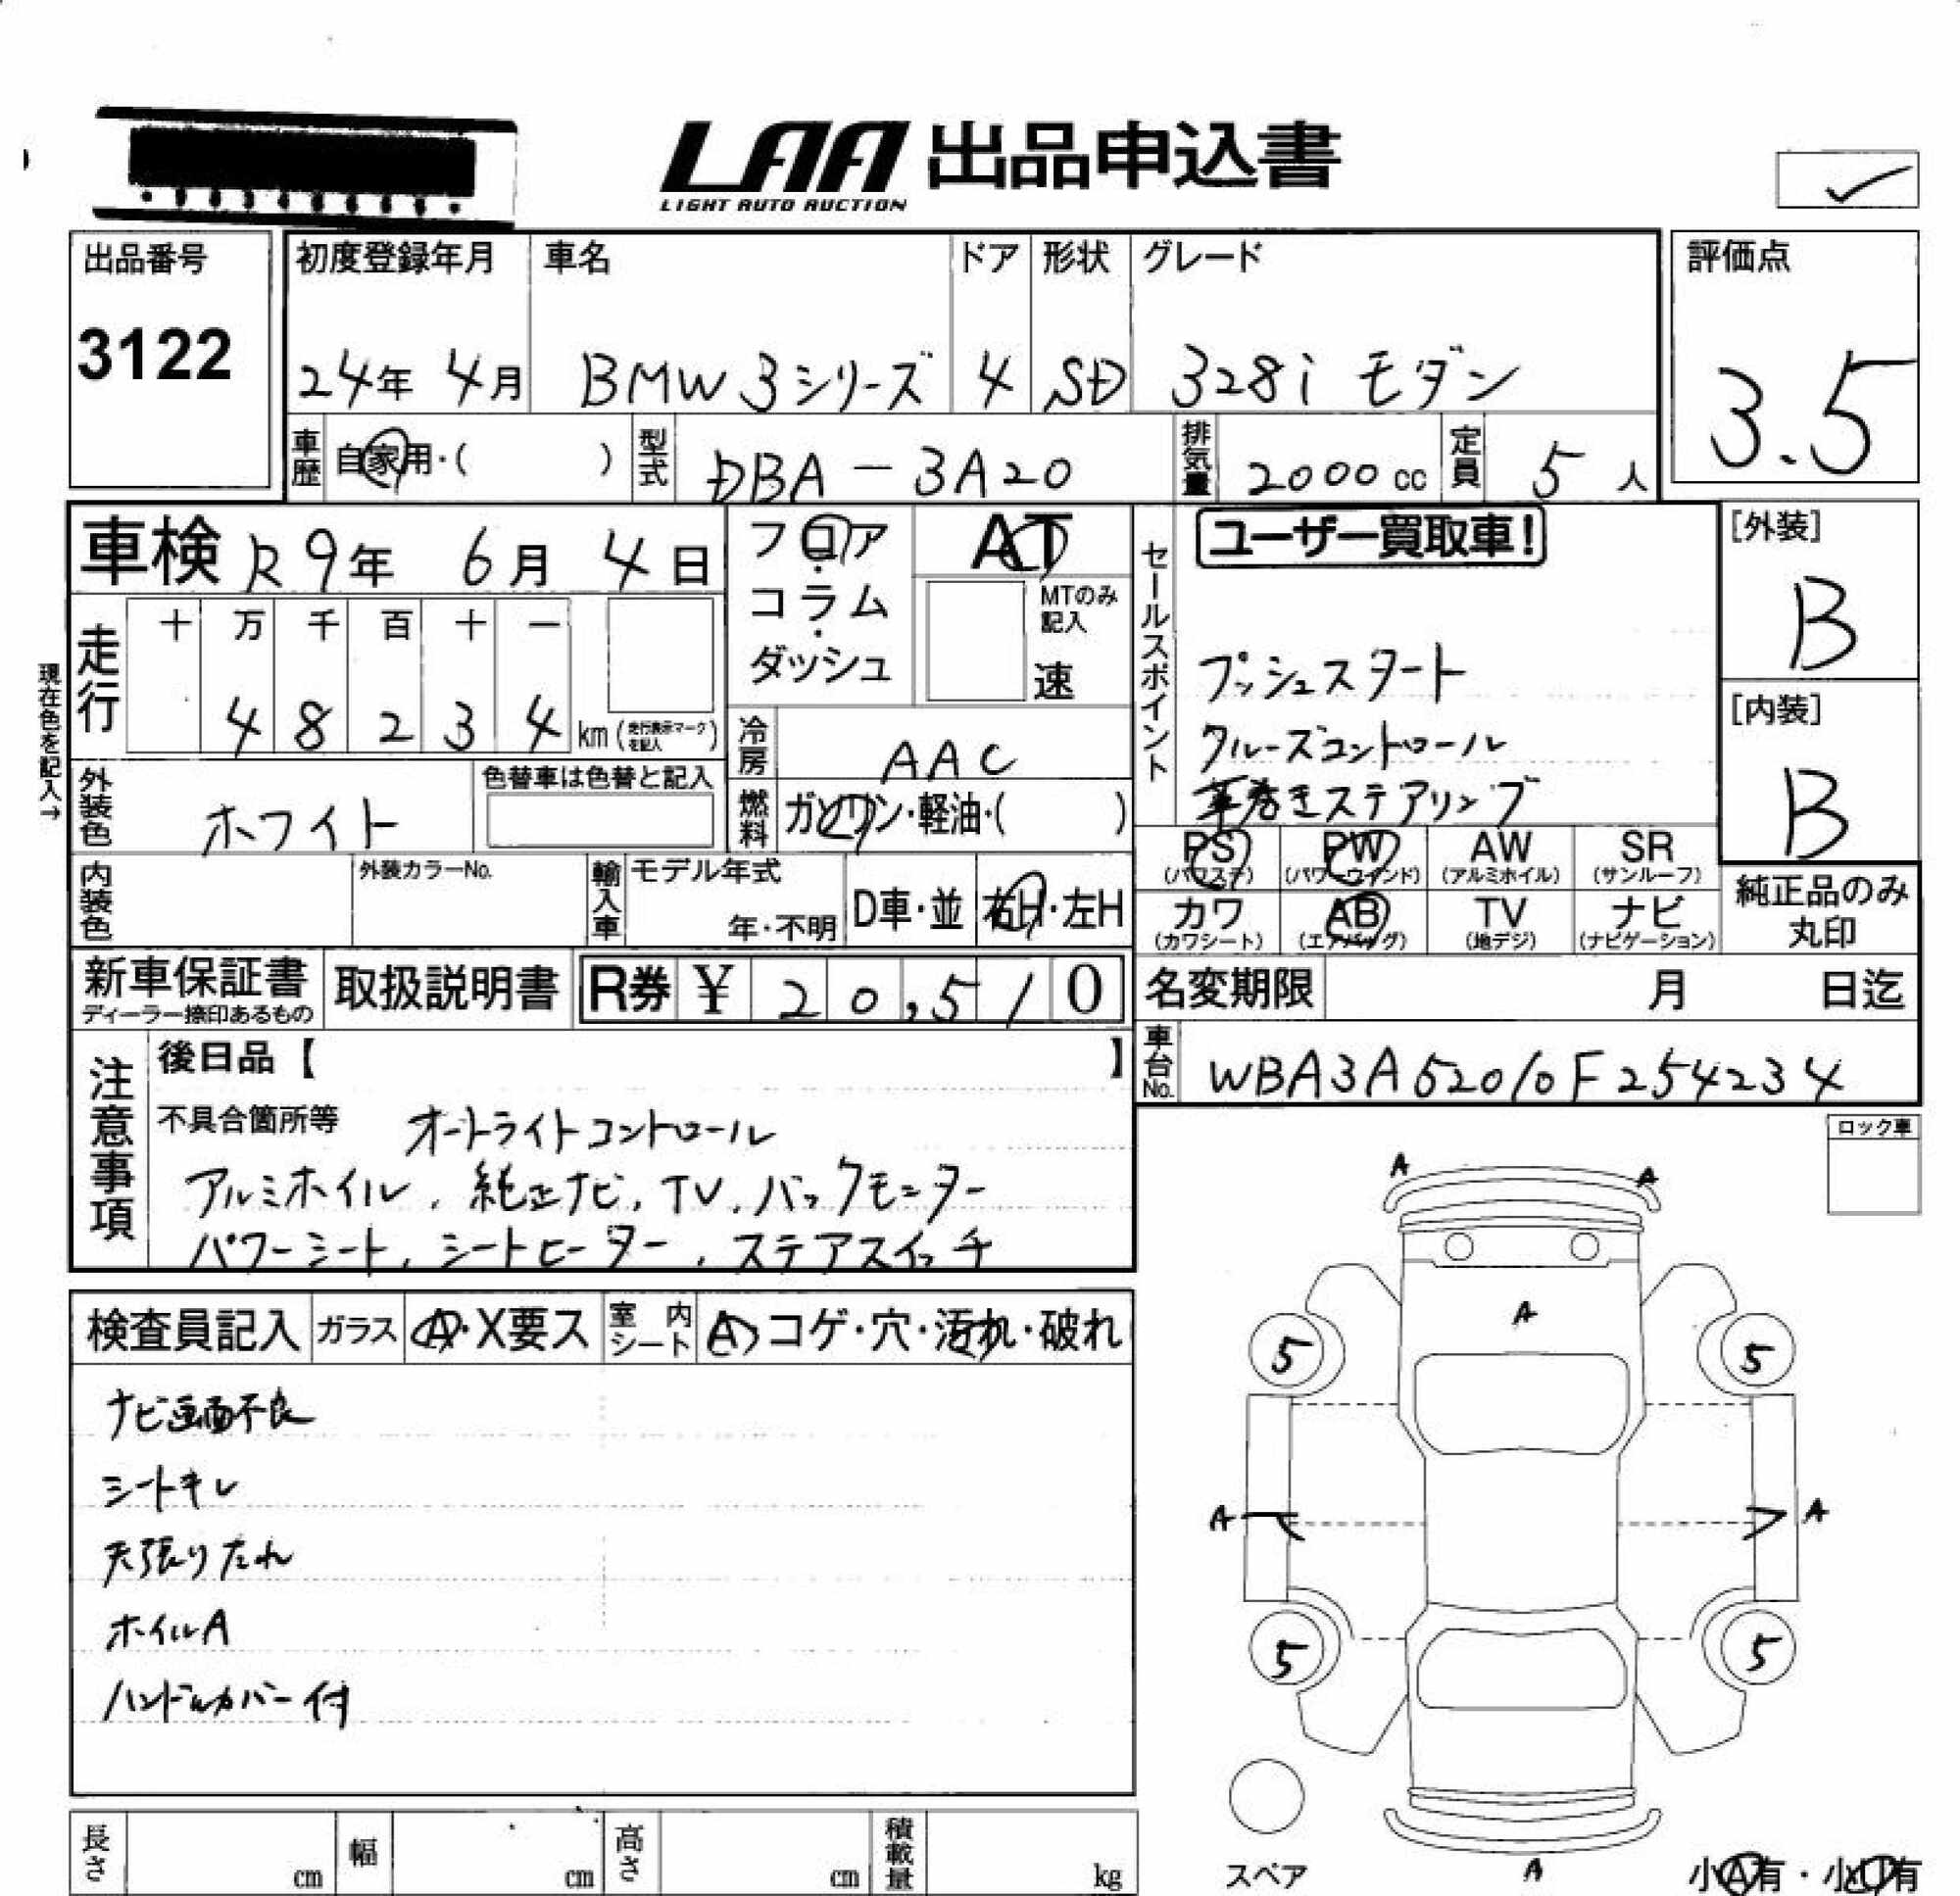 LAA 出品申込書
LIGHT AUTO AUCTION
出品番号
3122
初度登録年月 車名 ドア 形状 グレード
24年 4月 BMW 3シリーズ 4 SD 328i モダン
評価点
3.5
車歴 自家用・( ) 型式 DBA-3A20 排気量 2000cc 定員 5人
車検 R9年 6月 4日
フロア・コラム・ダッシュ
AT
MTのみ記入
速
走行 十 万 千 百 十 一
4 8 2 3 4 km(走行表示マークを記入)
現在色を記入→
冷房 AAC
外装色 ホワイト
色替車は色替と記入
燃料 ガソリン・軽油・( )
内装色
外装カラーNo.
輸入車 モデル年式 年・不明 D車・並 右H・左H
セールスポイント
ユーザー買取車!
プッシュスタート
クルーズコントロール
革巻きステアリング
[外装]
B
[内装]
B
PS (パワステ) PW (パワーウインド) AW (アルミホイル) SR (サンルーフ)
カワ (カワシート) AB (エアバッグ) TV (地デジ) ナビ (ナビゲーション)
純正品のみ丸印
新車保証書 ディーラー捺印あるもの 取扱説明書 R券 ¥ 20,510
名変期限 月 日迄
車台No. WBA3A52010F254234
注意事項
後日品【 】
不具合箇所等 オートライトコントロール
アルミホイル、純正ナビ、TV、バックモニター
パワーシート、シートヒーター、ステアスイッチ
ロック車
検査員記入 ガラス A・X要ス 室内シート A・コゲ・穴・汚れ・破れ
ナビ画面不良
シートキレ
天張りたれ
ホイルA
ハンドルカバー付
A A
A
5 5
A A
5 5
A
スペア
小A有・小U有
長さ cm 幅 cm 高さ cm 積載量 kg